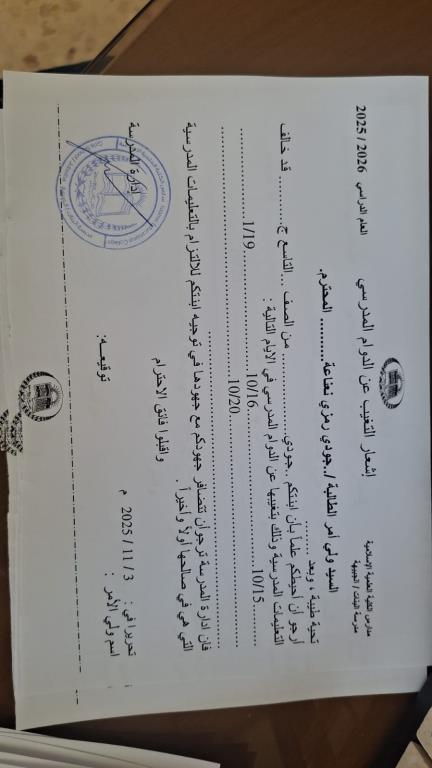 مدارس الكلية العلمية الإسلامية
مدرسة البنات / الجبيهة
العام الدراسي 2025 / 2026
إشعار التغيب عن الدوام المدرسي
السيد ولي أمر الطالبة /..جودي رمزي نعناعة.......... المحترم.
تحية طيبة ، وبعد ........
أرجو أن أحيطكم علماً بأن ابنتكم ..جودي.................. من الصف ...التاسع ج........... قد خالفت
التعليمات المدرسية وذلك بتغيبها عن الدوام المدرسي في الأيام التالية :
10/15
10/16
1/19
10/20
فإن إدارة المدرسة ترجو أن تتضافر جهودكم مع جهودها في توجيه ابنتكم للالتزام بالتعليمات المدرسية
التي هي في صالحها أولاً وأخيراً .
واقبلوا فائق الاحترام
تحريراً في : 3 / 11 / 2025 م
إدارة المدرسة
اسم ولي الأمر :
توقيعـــه: